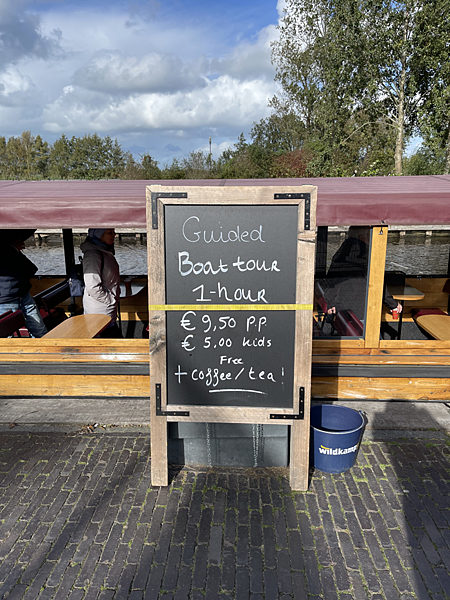 Guided
Boat tour
1-hour
€ 9,50 p.p
€ 5,00 kids
Free
+ coffee/tea!
wildkamp